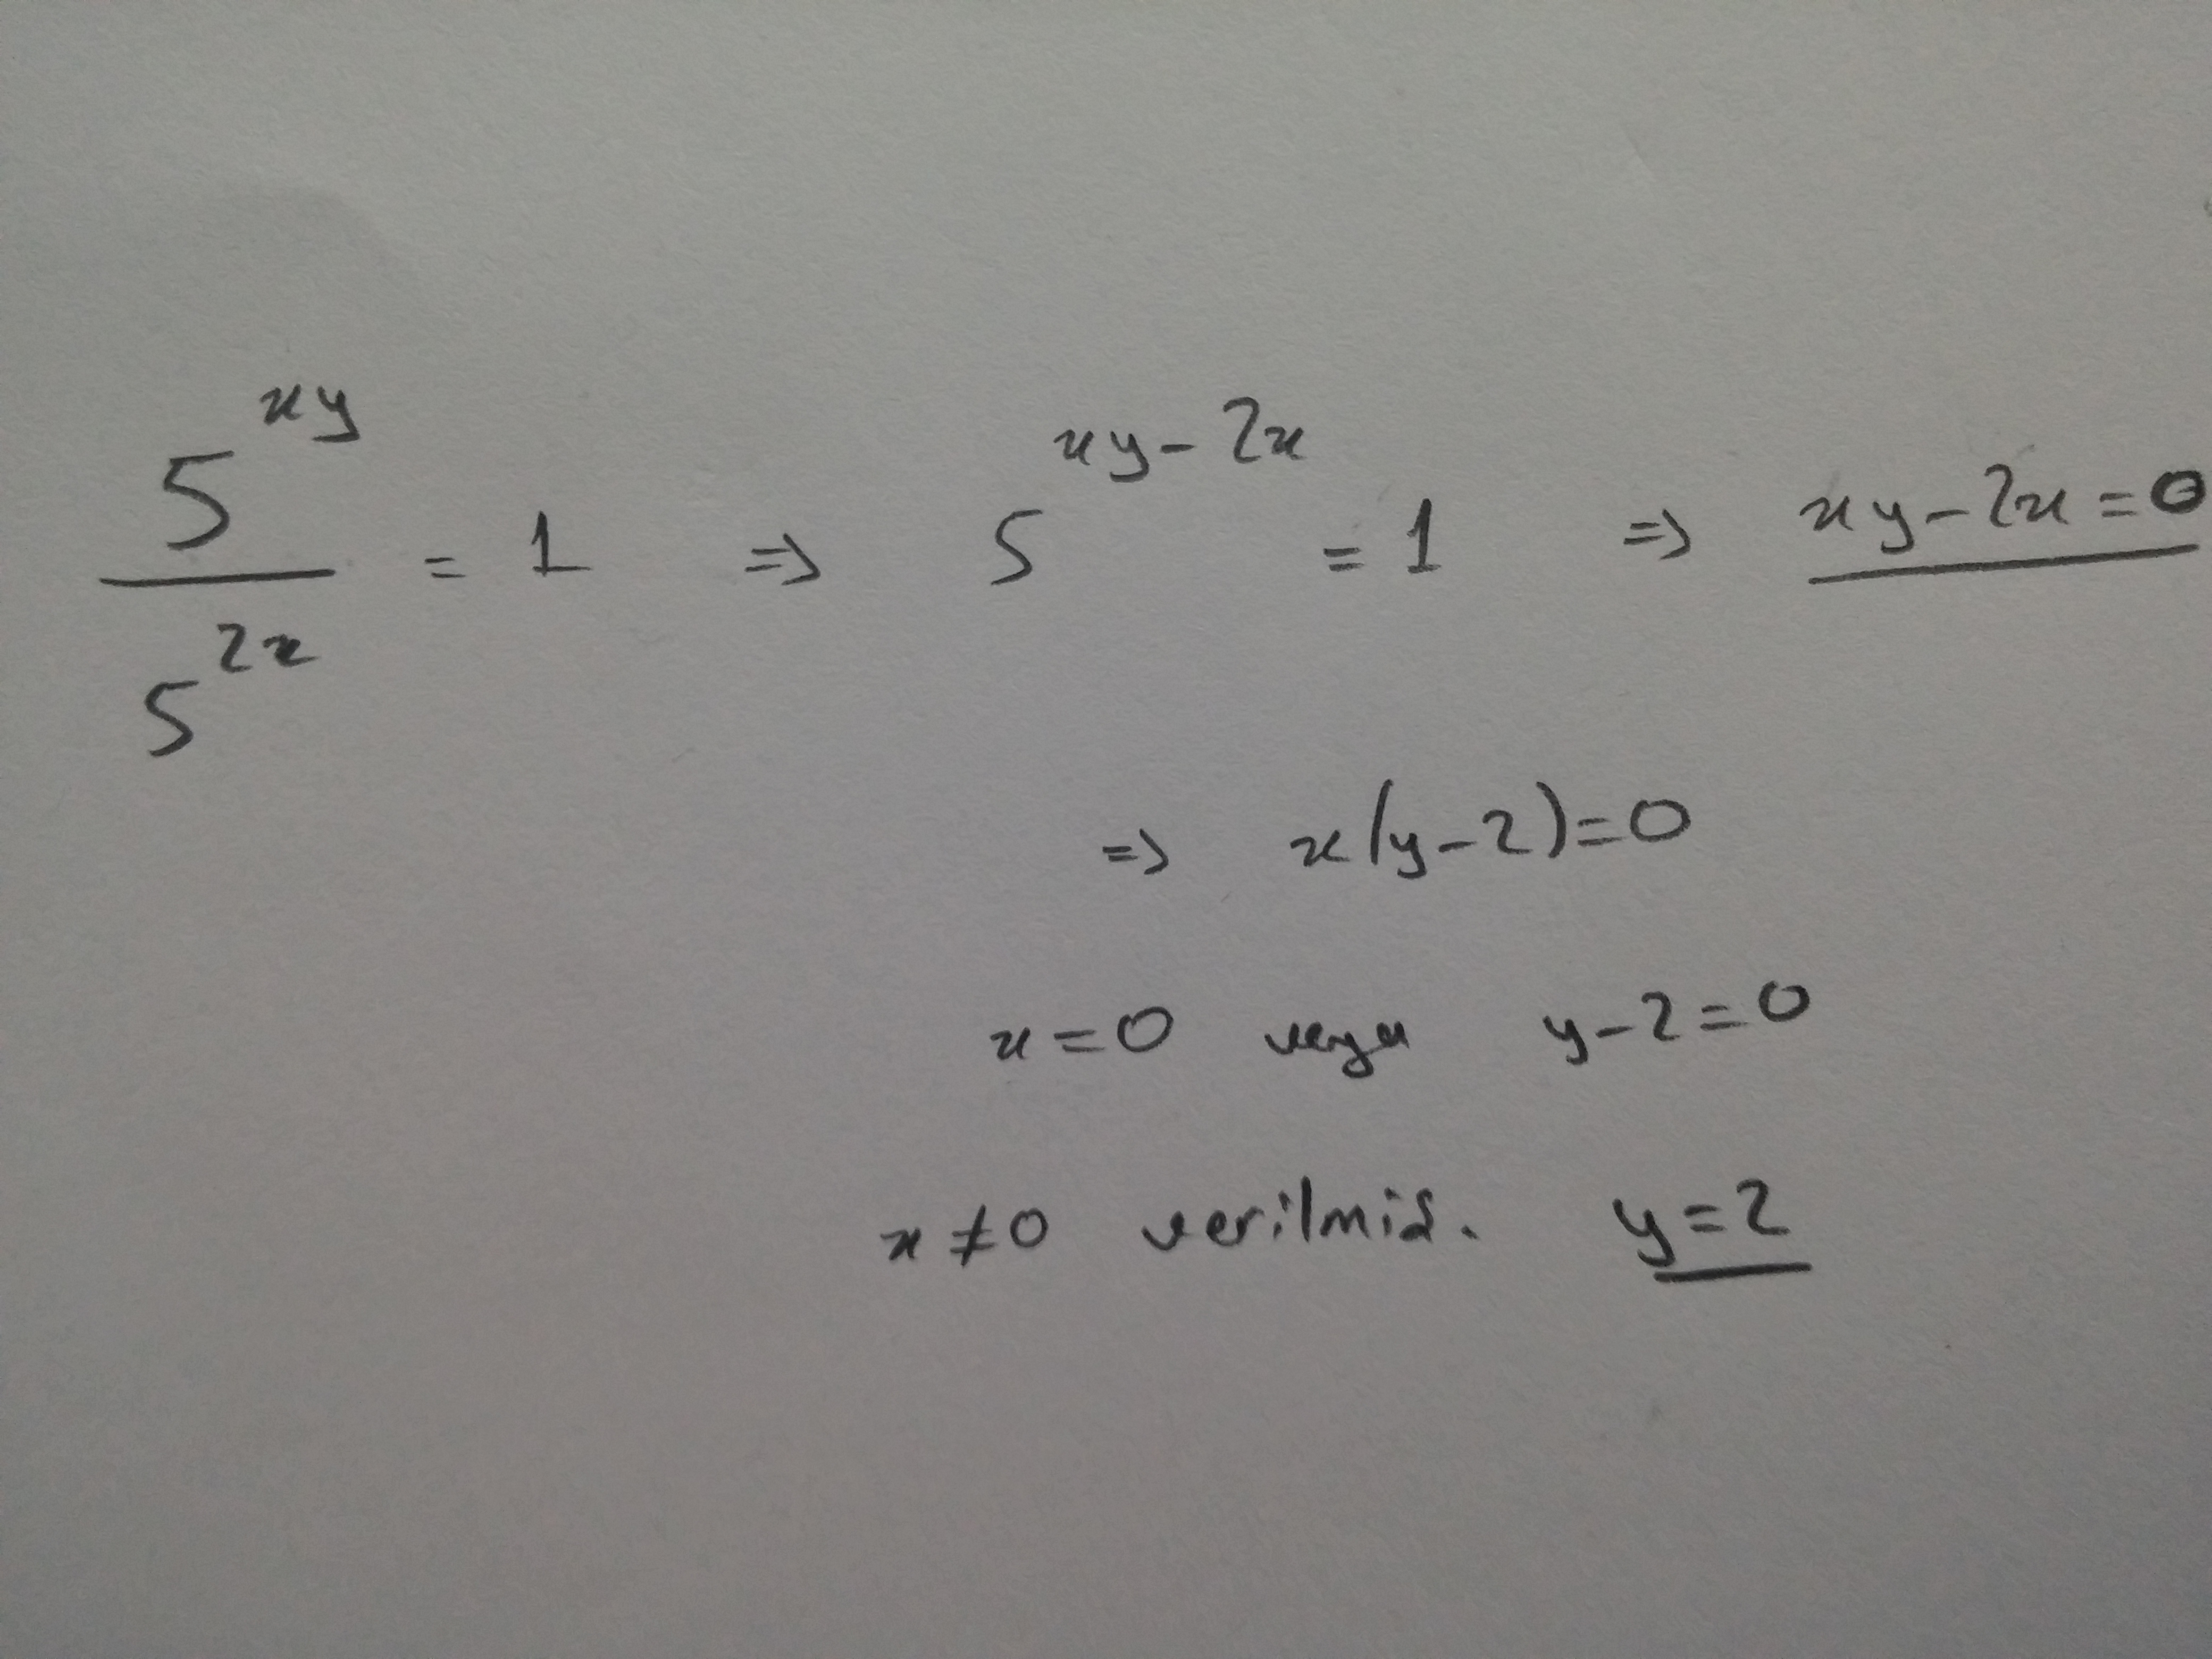 5^{xy} / 5^{2x} = 1 ⇒ 5^{xy-2x} = 1 ⇒ xy-2x=0
⇒ x(y-2)=0
x=0 veya y-2=0
x≠0 verilmiş. y=2